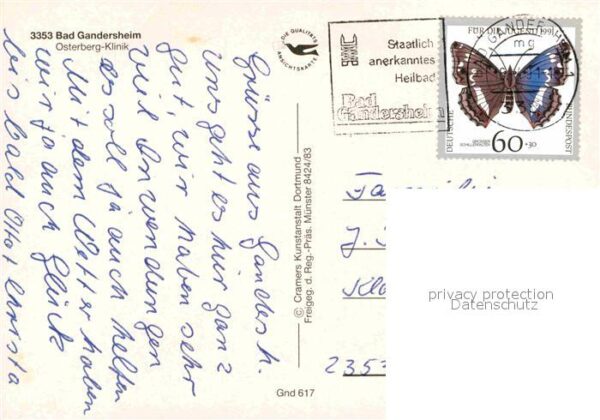 3353 Bad Gandersheim
Osterberg-Klinik
DIE QUALITÄTS
ANSICHTSKARTE
Staatlich
anerkanntes
Heilbad
Bad
Gandersheim
BAD GANDERSHEIM 1
mg
FÜR DIE JUGEND 1991
DEUTSCHE
BUNDESPOST
GROSSER
SCHILLERFALTER
60+30
Grüsse aus Gandesh.
Uns geht es hier ganz
gut wir haben sehr
viel Anwendungen
es soll ja auch helfen
Mit dem Wetter haben
wir ja auch Glück
bis bald Christa
© Cramers Kunstanstalt Dortmund
Freigeg. d. Reg.-Präs. Münster 8424/83
Familie
J.
2353
privacy protection
Datenschutz
Gnd 617